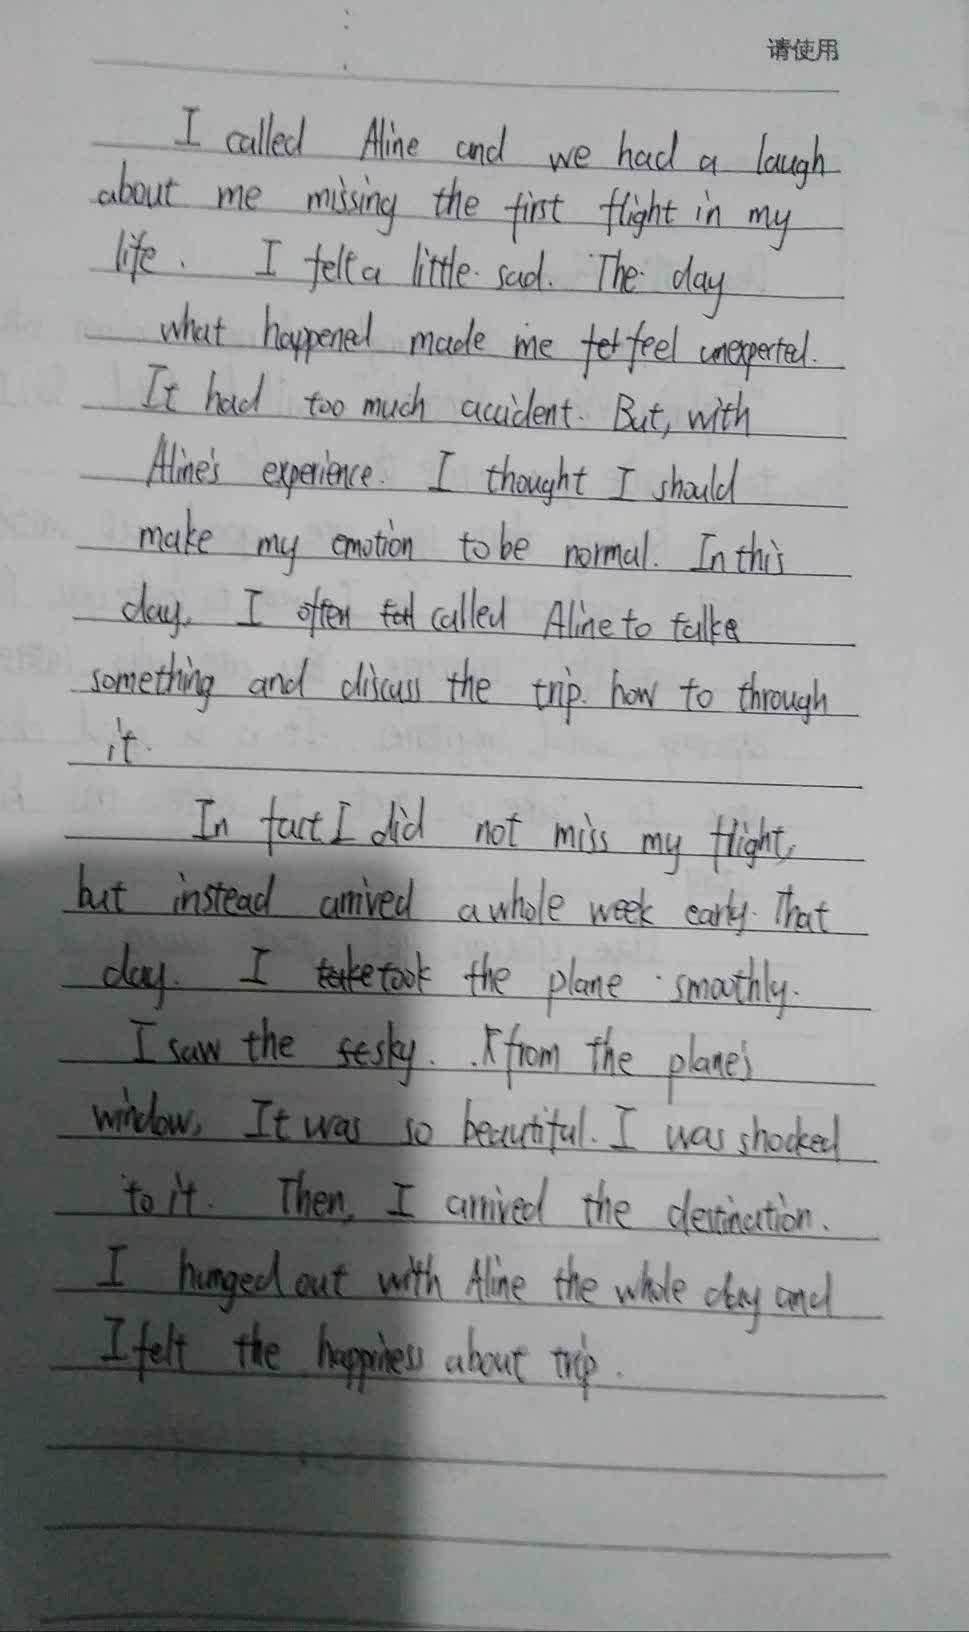 请使用
I called Aline and we had a laugh
about me missing the first flight in my
life. I felt a little sad. The day
what happened made me feel unexperted.
It had too much accident. But, with
Aline's experience. I thought I should
make my emotion to be normal. In this
day, I often called Aline to talke
something and discuss the trip. how to through
it.
In fact I did not miss my flight,
but instead arrived a whole week early. That
day. I took the plane smoothly.
I saw the sky. from the plane's
window, It was so beautiful. I was shocked
to it. Then, I arrived the destination.
I hunged out with Aline the whole day and
I felt the happiness about trip.